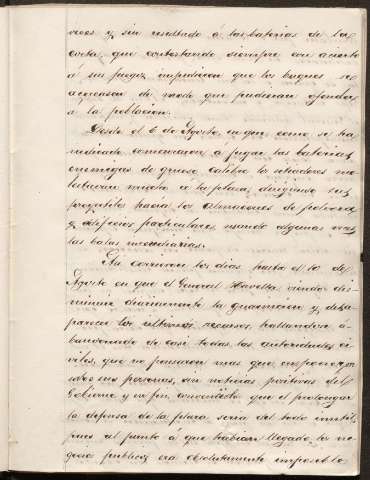 veces y sin resultado á las baterias de la
costa que contestando siempre con acierto
á su fuego, impidieron que los buques se
acercasen de modo que pudieran ofender
á la poblacion.
Desde el 6 de Agosto, en que como se ha
indicado comenzaron á jugar las baterias
enemigas de grueso calibre los sitiadores mo
lestaron mucho á la plaza, dirigiendo sus
proyectiles hacia los almacenes de polvora
y edificios particulares, usando algunas veces
las balas incendiarias.
Asi corrieron los dias hasta el 10 de
Agosto en que el General viendo dis
minuir diariamente la guarnicion y desa
parecer los ultimos recursos, hallandose á
bandonado de casi todas las autoridades ci
viles, que no pensaron mas que en poner en
salvo sus personas, sin noticias positivas del
Gobierno y en fin convencido que el prolongar
la defensa de la plaza seria del todo inutil,
pues al punto á que habian llegado los ne
gocios publicos era absolutamente imposible